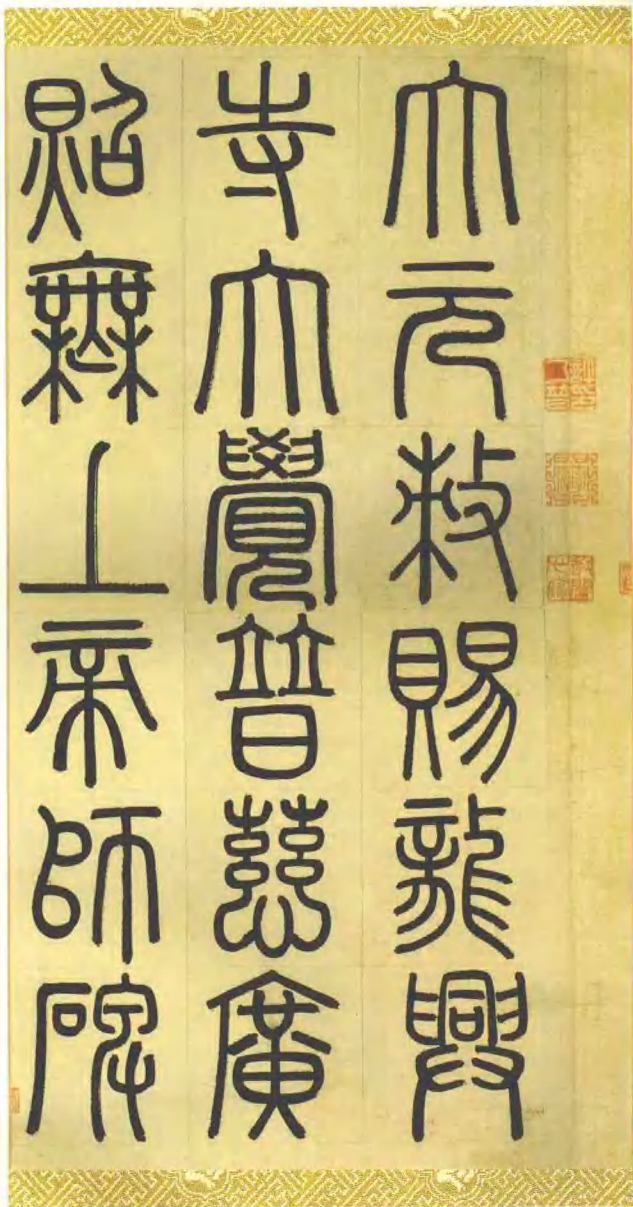 大元敕賜龍興
寺大覺普慈廣
照無上帝師碑